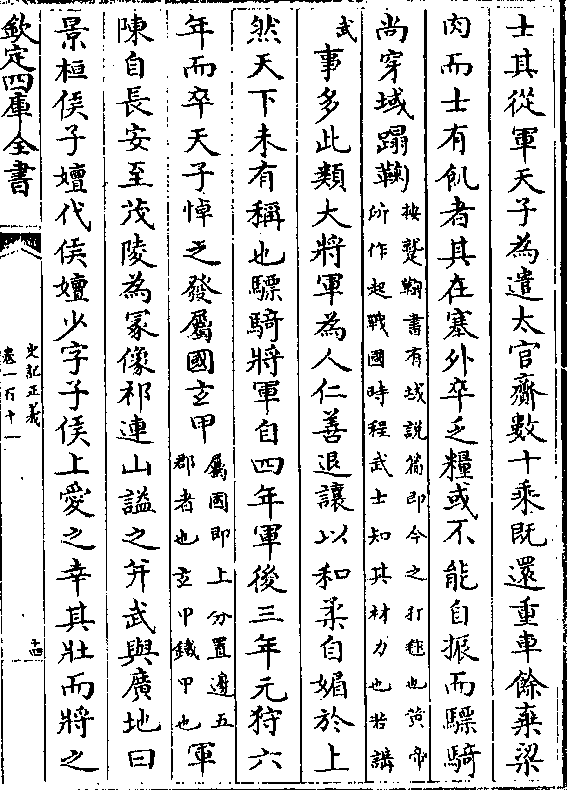 士其從軍天子為遣太官齎數十乘既還重車餘棄粱
肉而士有飢者其在塞外卒乏糧或不能自振而驃騎
尚穿域蹋鞠
按蹵鞠書有域說篇即今之打毬也黃帝
所作起戰國時程武士知其材力也若講
武
事多此類大將軍為人仁善退讓以和柔自媚於上
然天下未有稱也驃騎將軍自四年軍後三年元狩六
年而卒天子悼之發屬國玄甲
屬國即上分置邊五
郡者也玄甲鐵甲也
軍
陳自長安至茂陵為冢像祁連山諡之并武與廣地曰
景桓侯子嬗代侯嬗少字子侯上愛之幸其壯而將之
欽定四庫全書
史記正義
卷一百十一